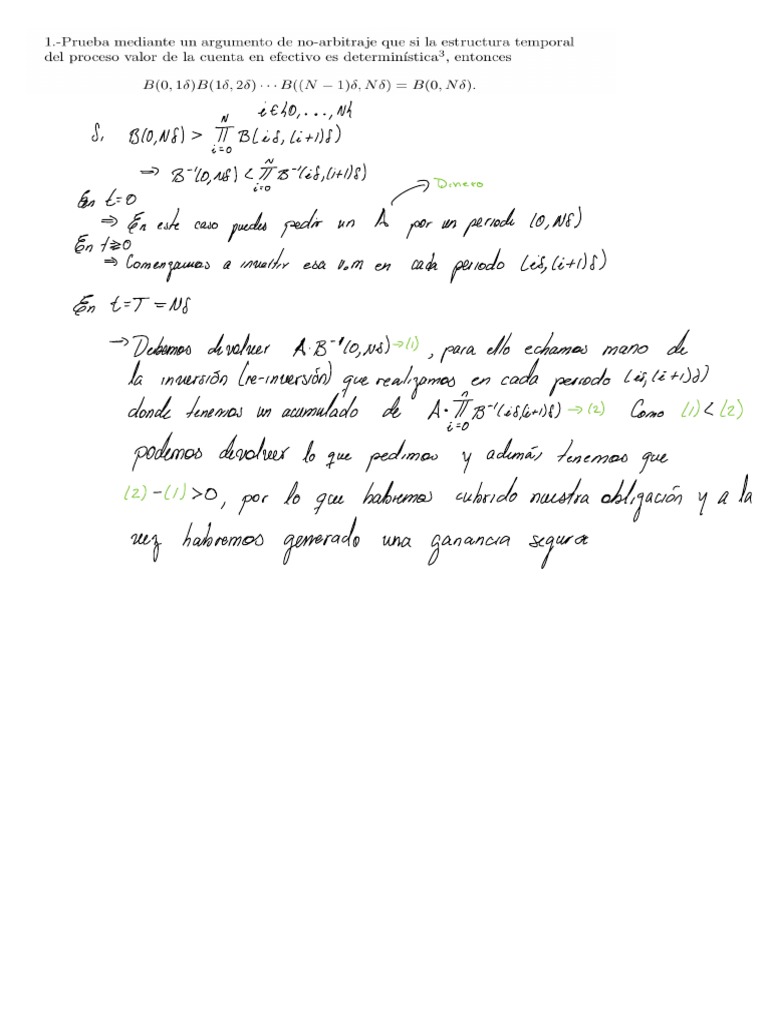 1.-Prueba mediante un argumento de no-arbitraje que si la estructura temporal
del proceso valor de la cuenta en efectivo es determinística³, entonces
B(0, 1δ)B(1δ, 2δ) · · · B((N − 1)δ, Nδ) = B(0, Nδ).
i ∈ {0, ..., N}
Si B(0,Nδ) > ∏_{i=0}^{N} B(iδ, (i+1)δ)
⇒ B⁻¹(0,Nδ) < ∏_{i=0}^{N} B⁻¹(iδ,(i+1)δ)
→ Dinero
En t=0
⇒ En este caso puedes pedir un A por un periodo (0, Nδ)
En t≥0
⇒ Comenzamos a invertir esa v.m en cada periodo (iδ,(i+1)δ)
En t=T=Nδ
→ Debemos devolver A·B⁻¹(0,Nδ) →(1) , para ello echamos mano de
la inversión (re-inversión) que realizamos en cada periodo (iδ,(i+1)δ)
donde tenemos un acumulado de A·∏_{i=0}^{n} B⁻¹(iδ,(i+1)δ) →(2) Como (1)<(2)
podemos devolver lo que pedimos y además tenemos que
(2)-(1)>0, por lo que habremos cubrido nuestra obligación y a la
vez habremos generado una ganancia segura